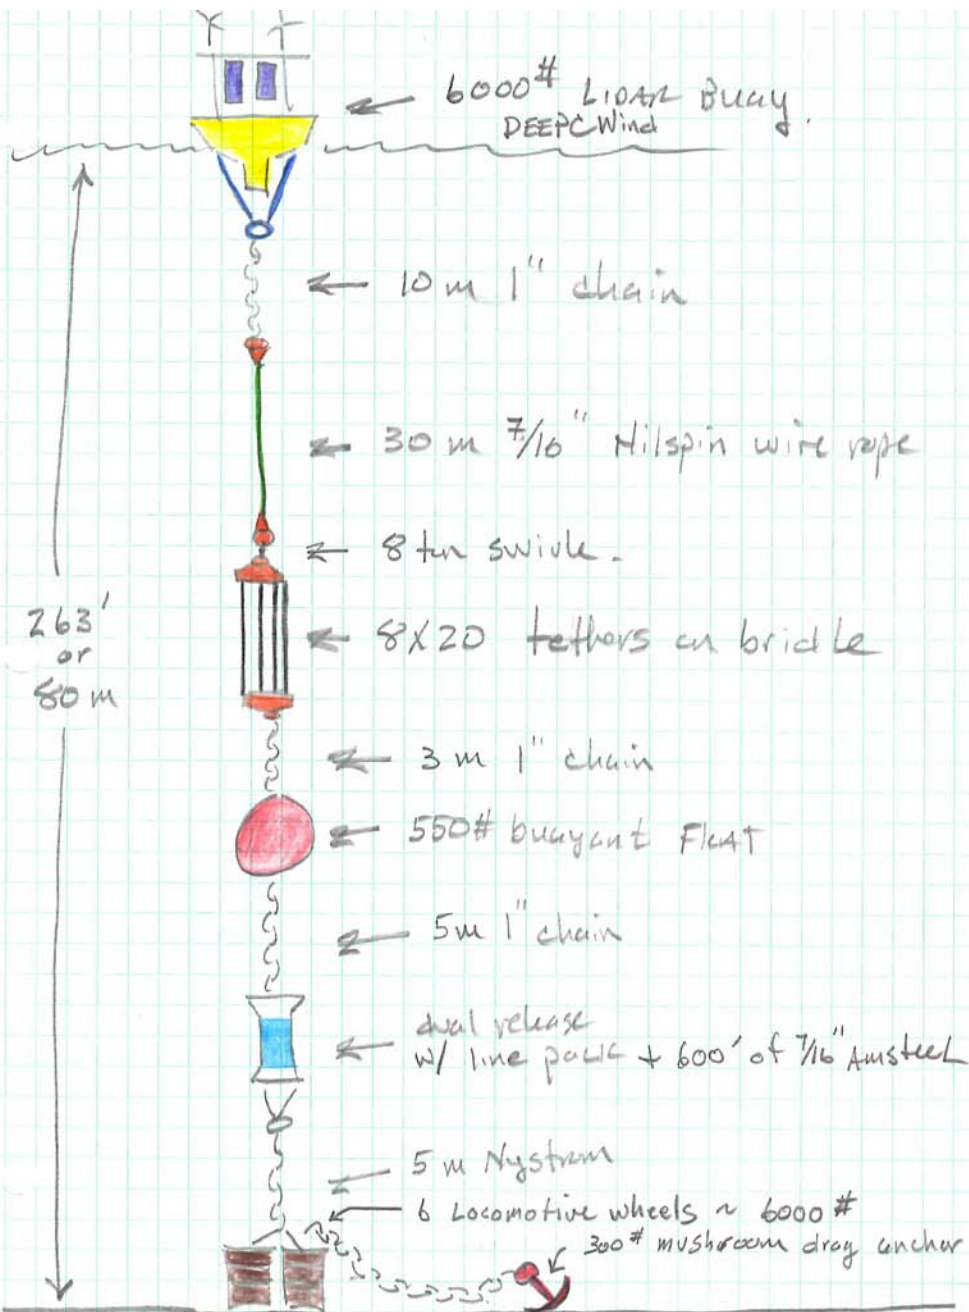 6000# LIDAR Buoy.
DEEPCWind
10 m 1" chain
30 m 7/16" Nilspin wire rope
8 ton swivle.
263'
or
80 m
8X20 tethers on bridle
3 m 1" chain
550# buoyant Float
5m 1" chain
dual release
w/ line pack + 600' of 7/16" Amsteel
5 m Nystrom
6 Locomotive wheels ~ 6000#
300# mushroom drag anchor